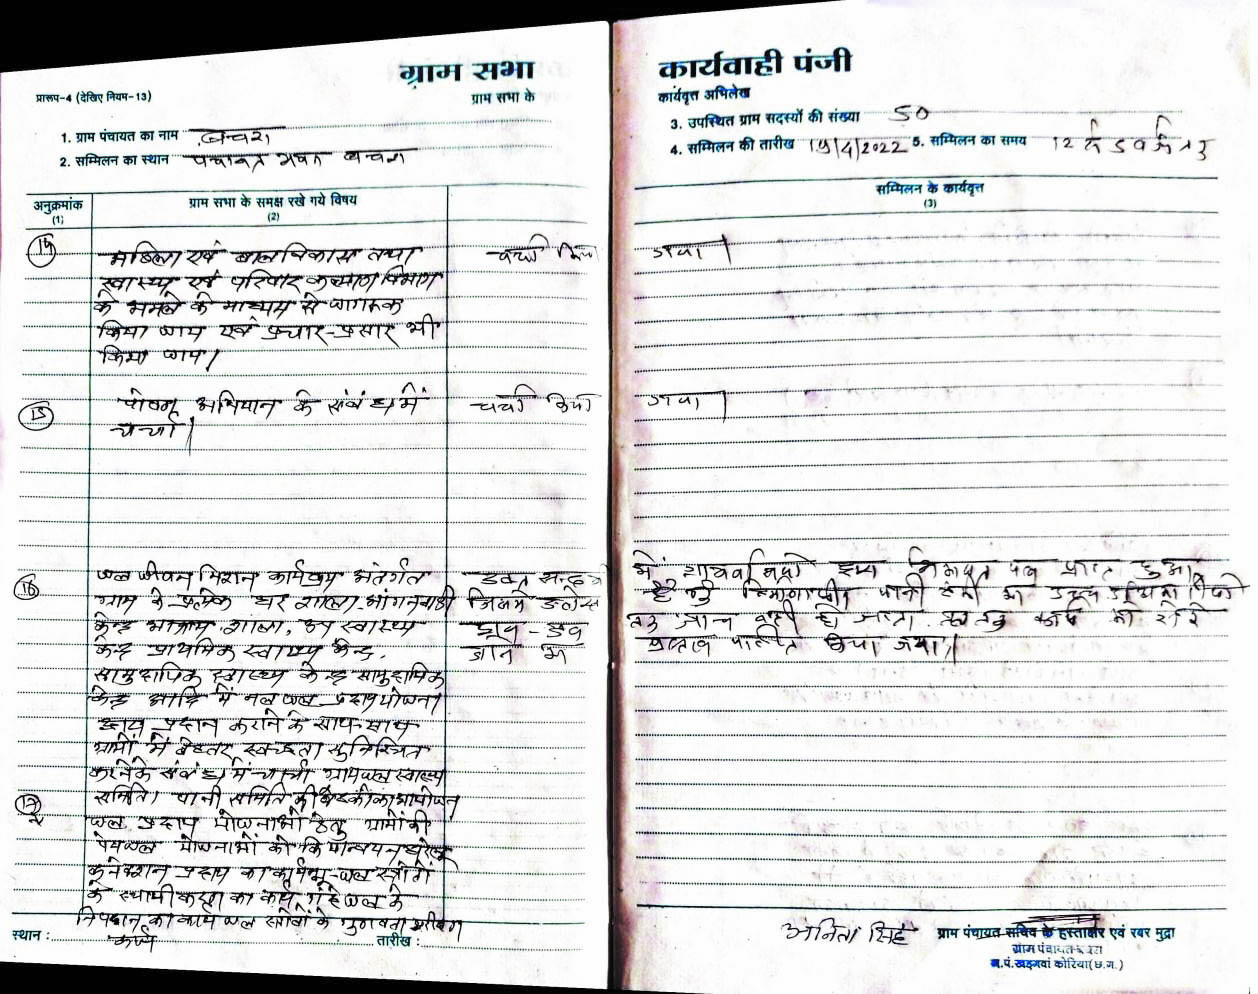 ग्राम सभा
प्रारूप-4 (देखिए नियम-13)
ग्राम सभा के
1. ग्राम पंचायत का नाम बन्चरा
2. सम्मिलन का स्थान पंचायत भवन बन्चरा
अनुक्रमांक
(1)
ग्राम सभा के समक्ष रखे गये विषय
(2)
महिला एवं बाल विकास तथा
स्वास्थ्य एवं परिवार कल्याण विभाग
के अमले के माध्यम से जागरूक
किया जाय एवं प्रचार-प्रसार भी
किया जाय।
चर्चा किया
15
पोषण अभियान के संबंध में
चर्चा।
चर्चा किया
16
जल जीवन मिशन कार्यक्रम अंतर्गत
ग्राम के प्रत्येक घर शाला, आंगनबाड़ी
केन्द्र आश्रम शाला, उप स्वास्थ्य
केन्द्र प्राथमिक स्वास्थ्य केन्द्र,
सामुदायिक स्वास्थ्य केन्द्र सामुदायिक
केन्द्र आदि में नल जल प्रदाय योजना
द्वारा प्रदान कराने के साथ-साथ
ग्रामों में बेहतर स्वच्छता सुनिश्चित
करने के संबंध में चर्चा ग्राम जल स्वास्थ्य
समिति। पानी समिति की बैठकों का आयोजन
17
जल प्रदाय योजनाओं हेतु ग्रामों की
पेयजल योजनाओं को क्रियान्वयन घरेलू
कनेक्शन प्रदाय का कार्य भू-जल स्त्रोतों
के स्थायीकरण का कार्य गंदे जल के
निपदान का कार्य जल स्त्रोतों के गुणवत्ता
कार्य
स्थान :
तारीख :
कार्यवाही पंजी
कार्यवृत्त अभिलेख
3. उपस्थित ग्राम सदस्यों की संख्या 50
4. सम्मिलन की तारीख 19/4/2022 5. सम्मिलन का समय 12
सम्मिलन के कार्यवृत्त
(3)
गया।
गया।
प्राप्त हुआ
प्रस्ताव पारित किया गया।
अनिता सिंह
ग्राम पंचायत सचिव के हस्ताक्षर एवं रबर मुद्रा
ग्राम पंचायत
ज.पं. खड़गवां कोरिया(छ.ग.)